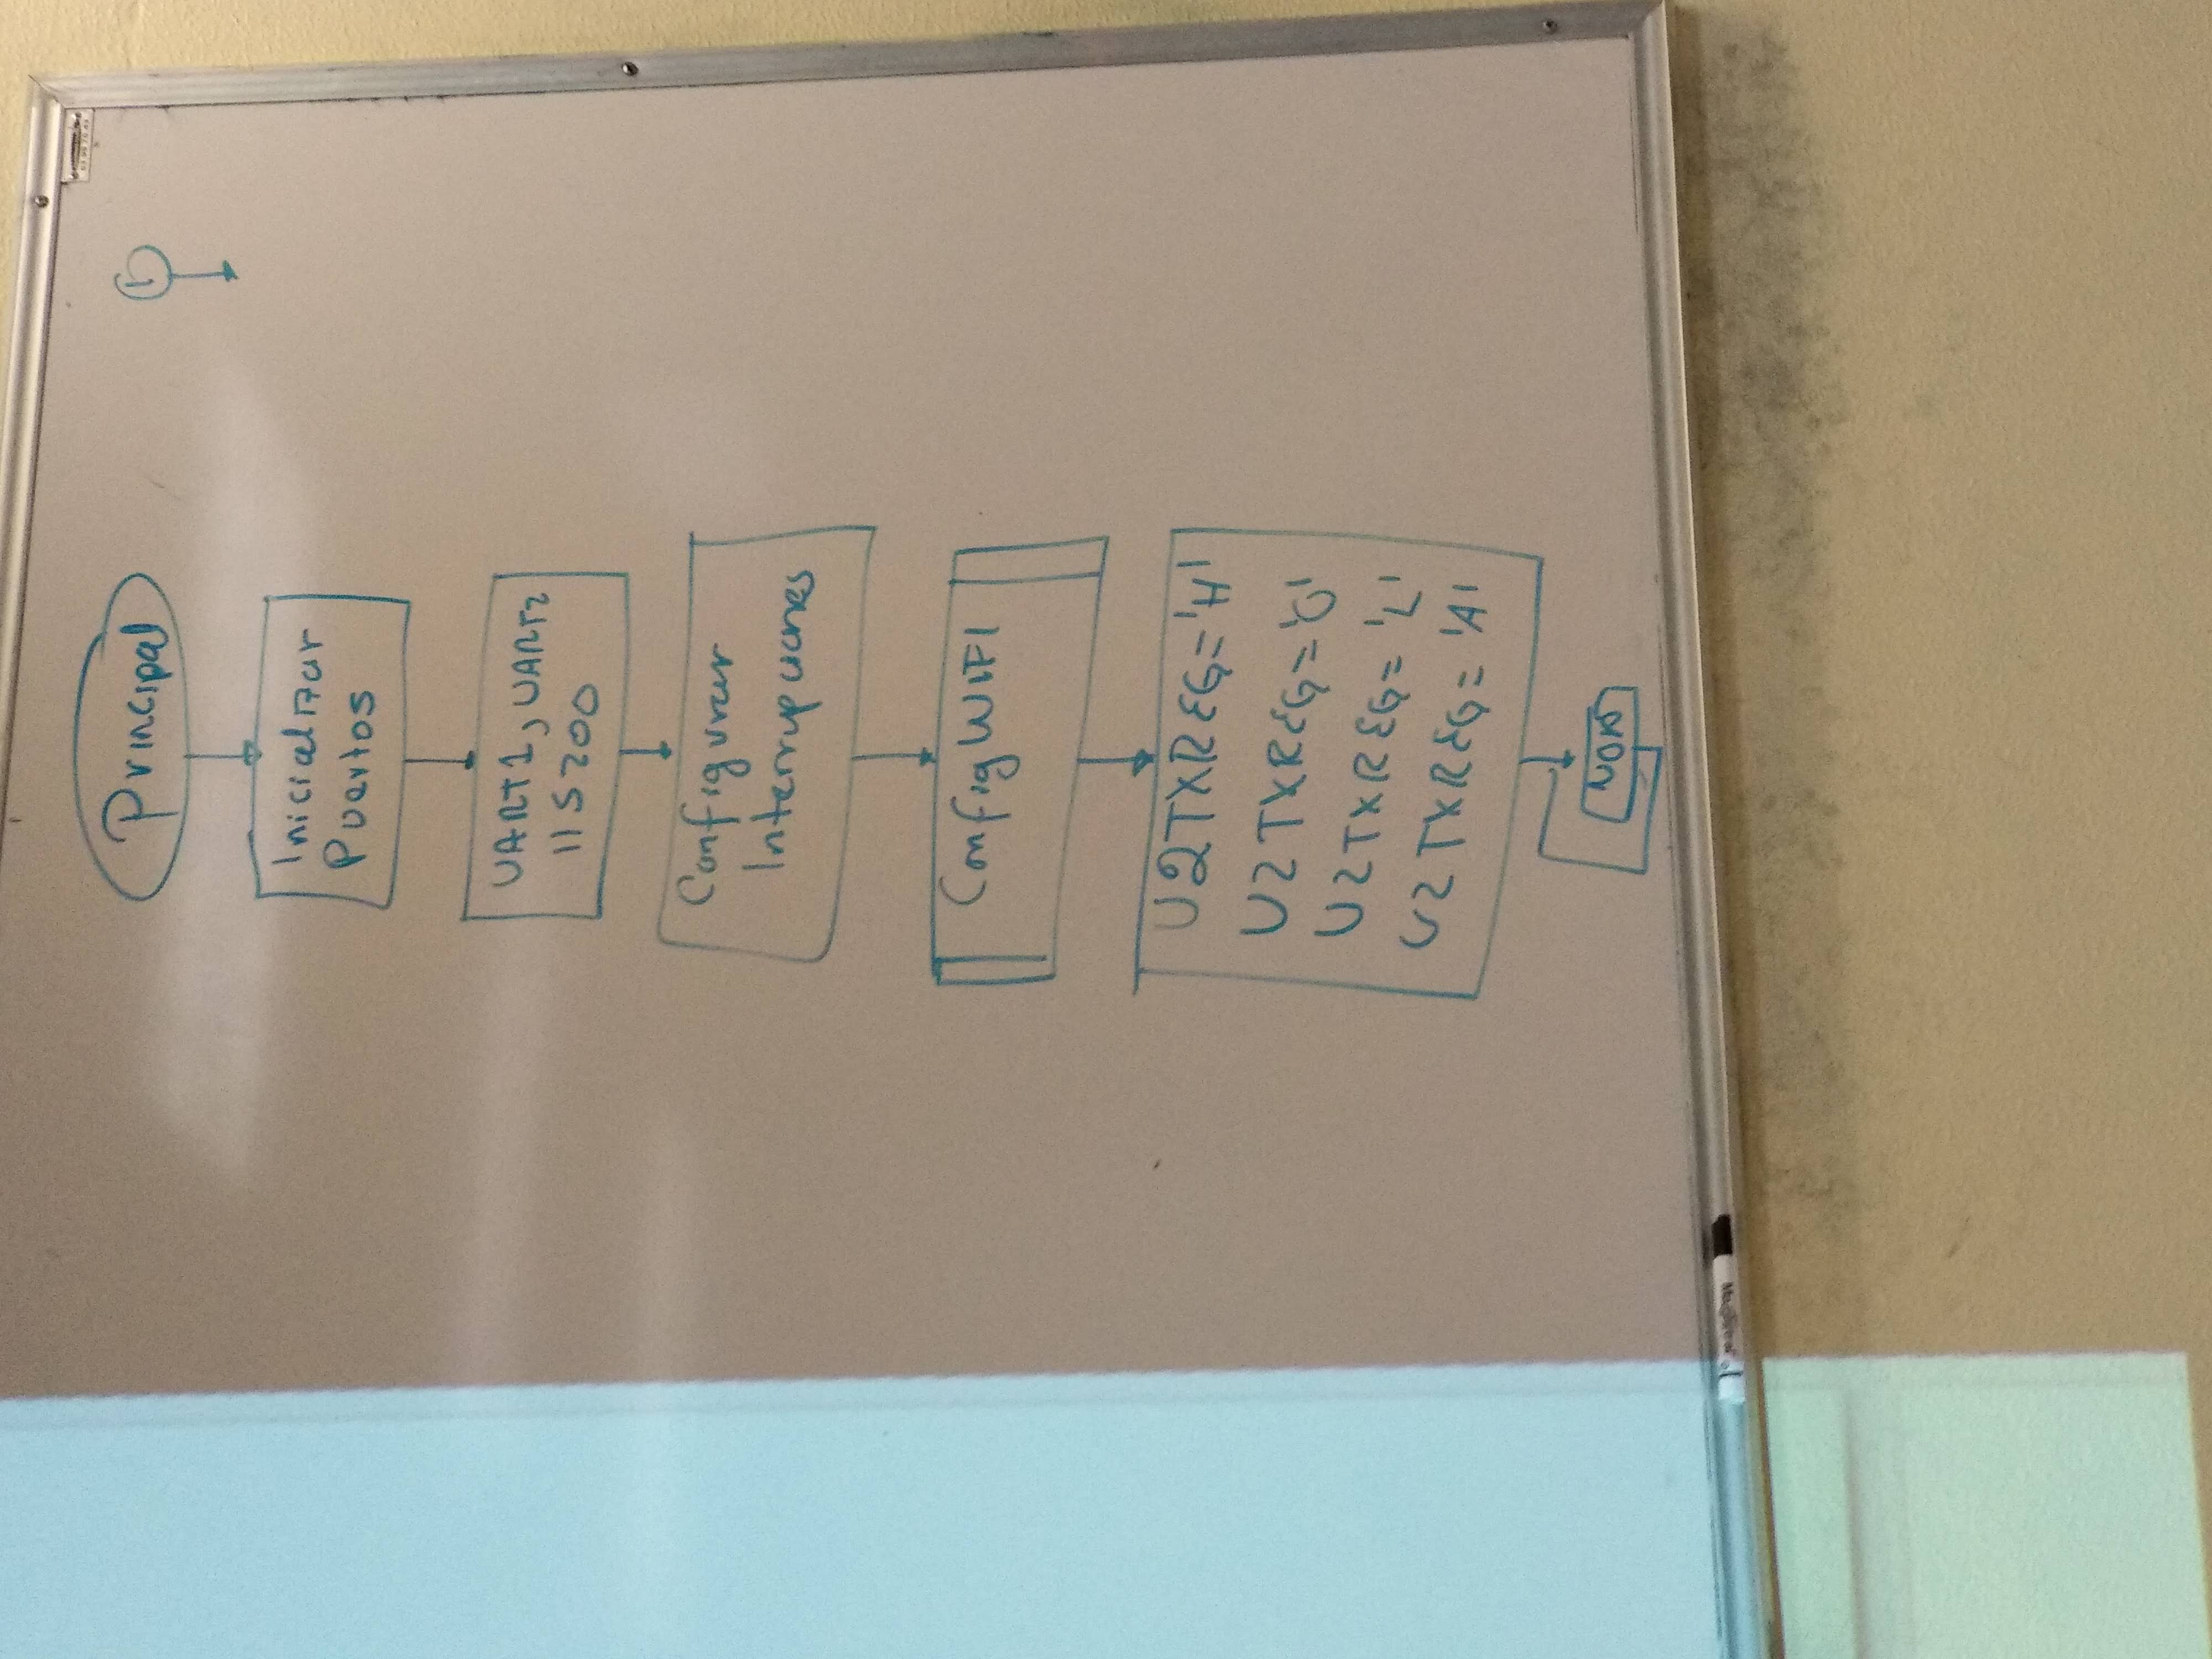 Principal
1
Inicializar
Puertos
UART1, UART2
115200
Configurar
Interrupciones
Config WIFI
U2TXREG='H'
U2TXREG='O'
U2TXREG='L'
U2TXREG='A'
NOP